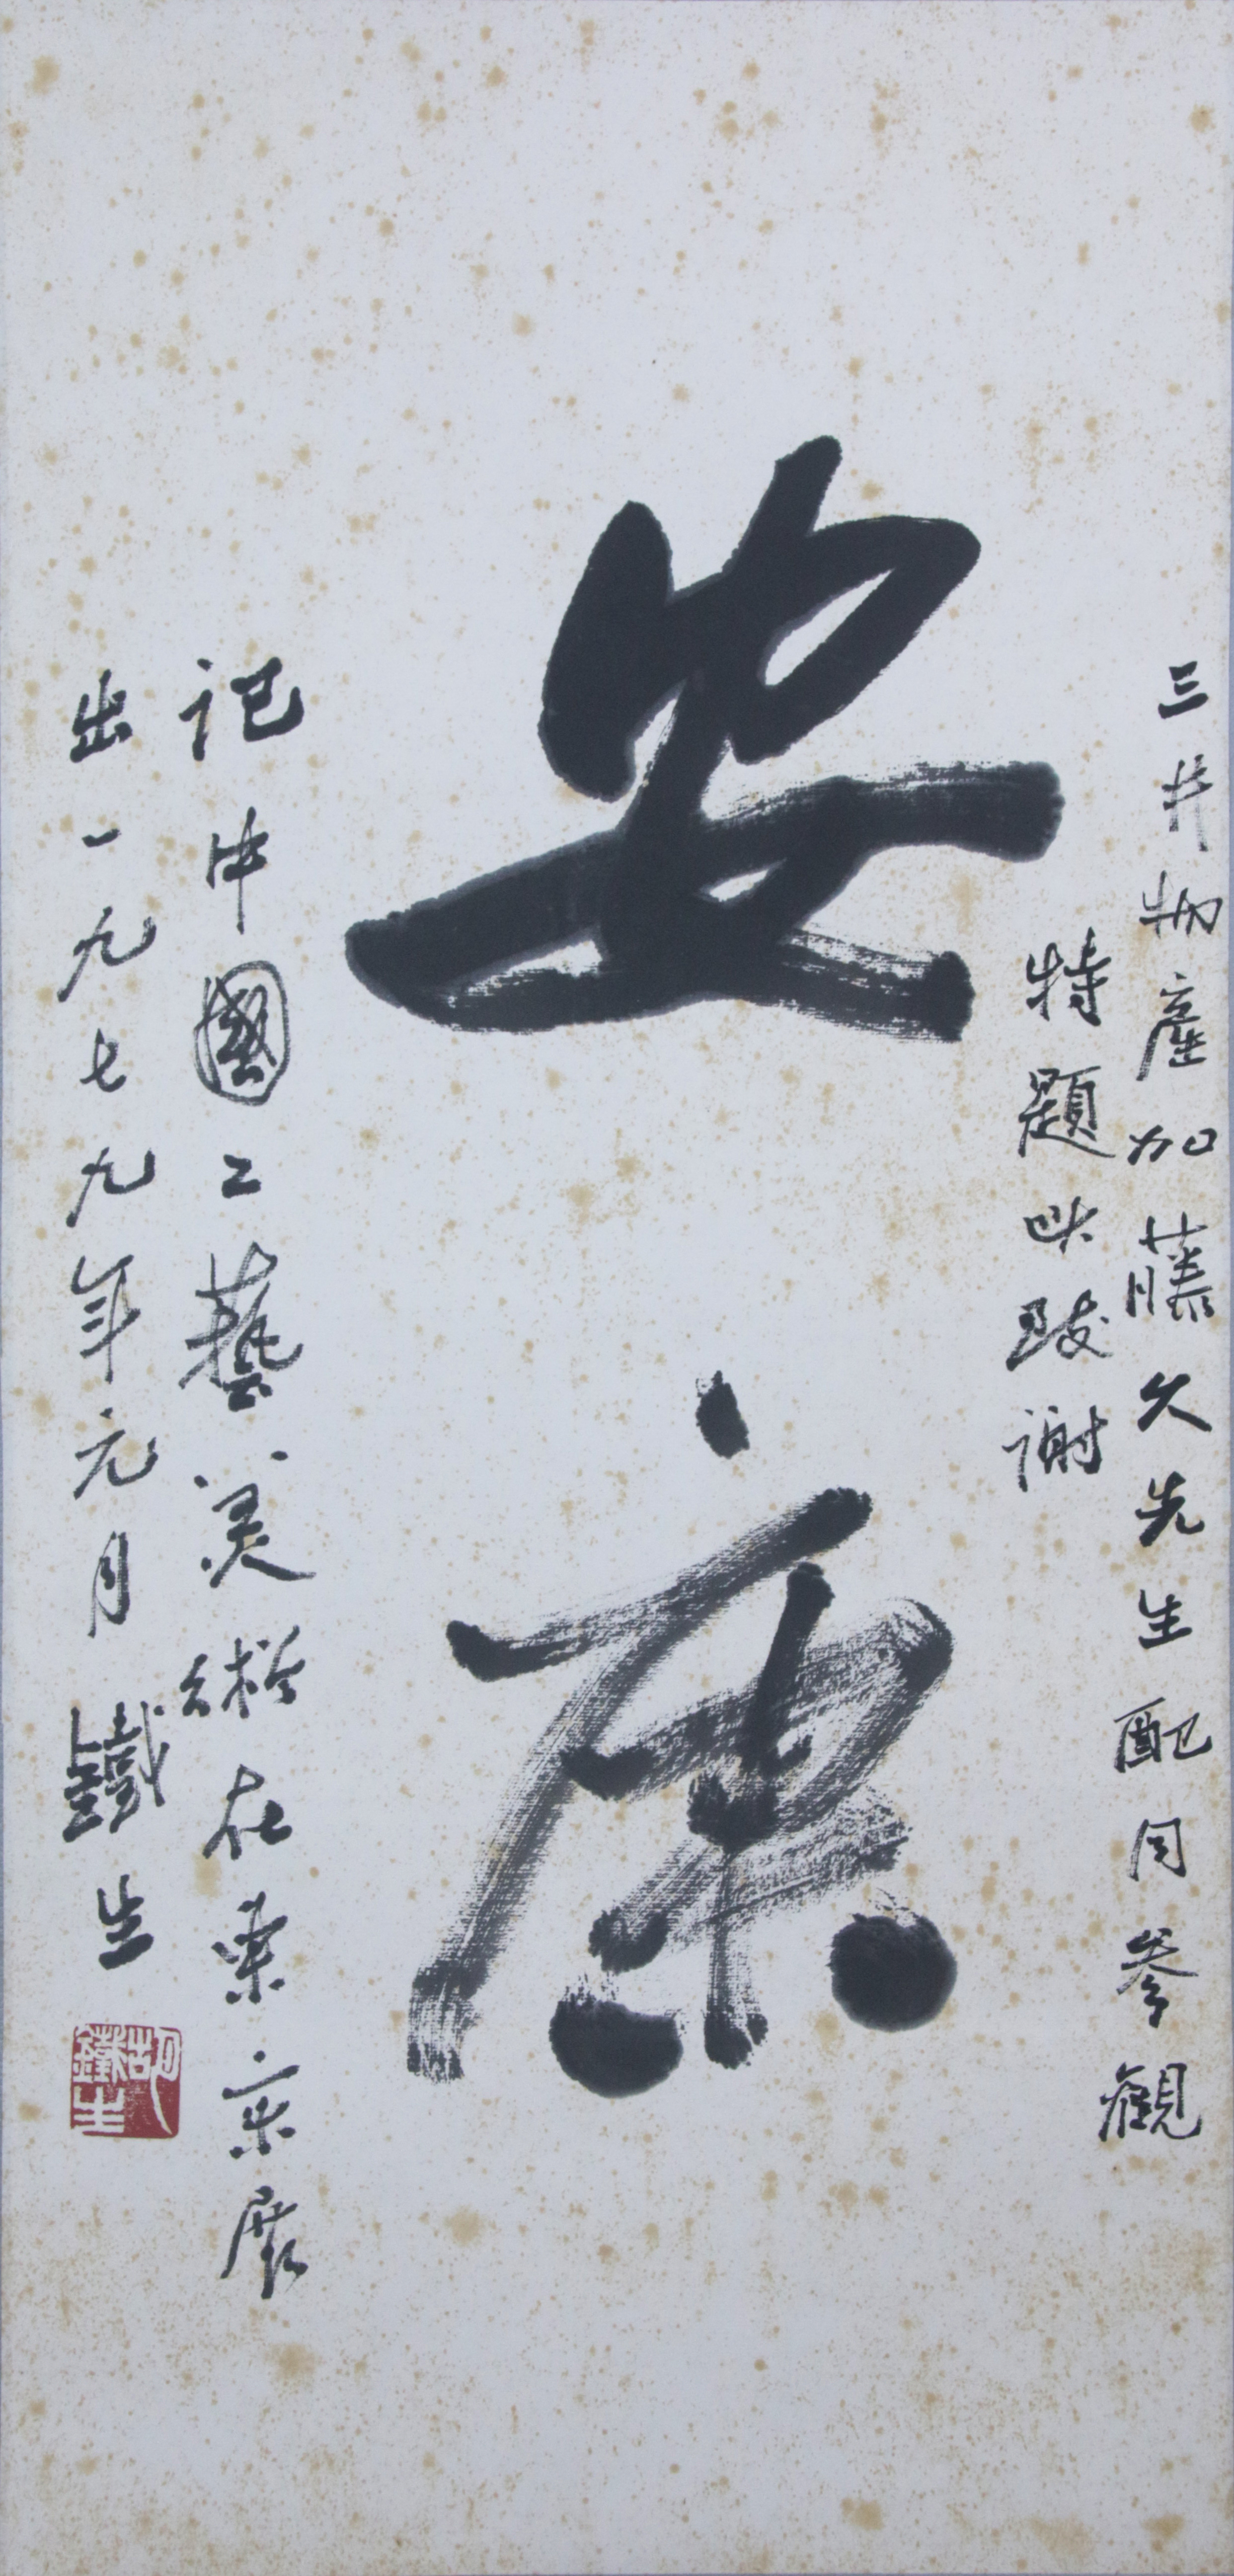 三井物產加藤久先生配同參觀
特題此致謝
安康
記中國工藝美術在東京展
出一九七九年元月 鐵生
鐵生